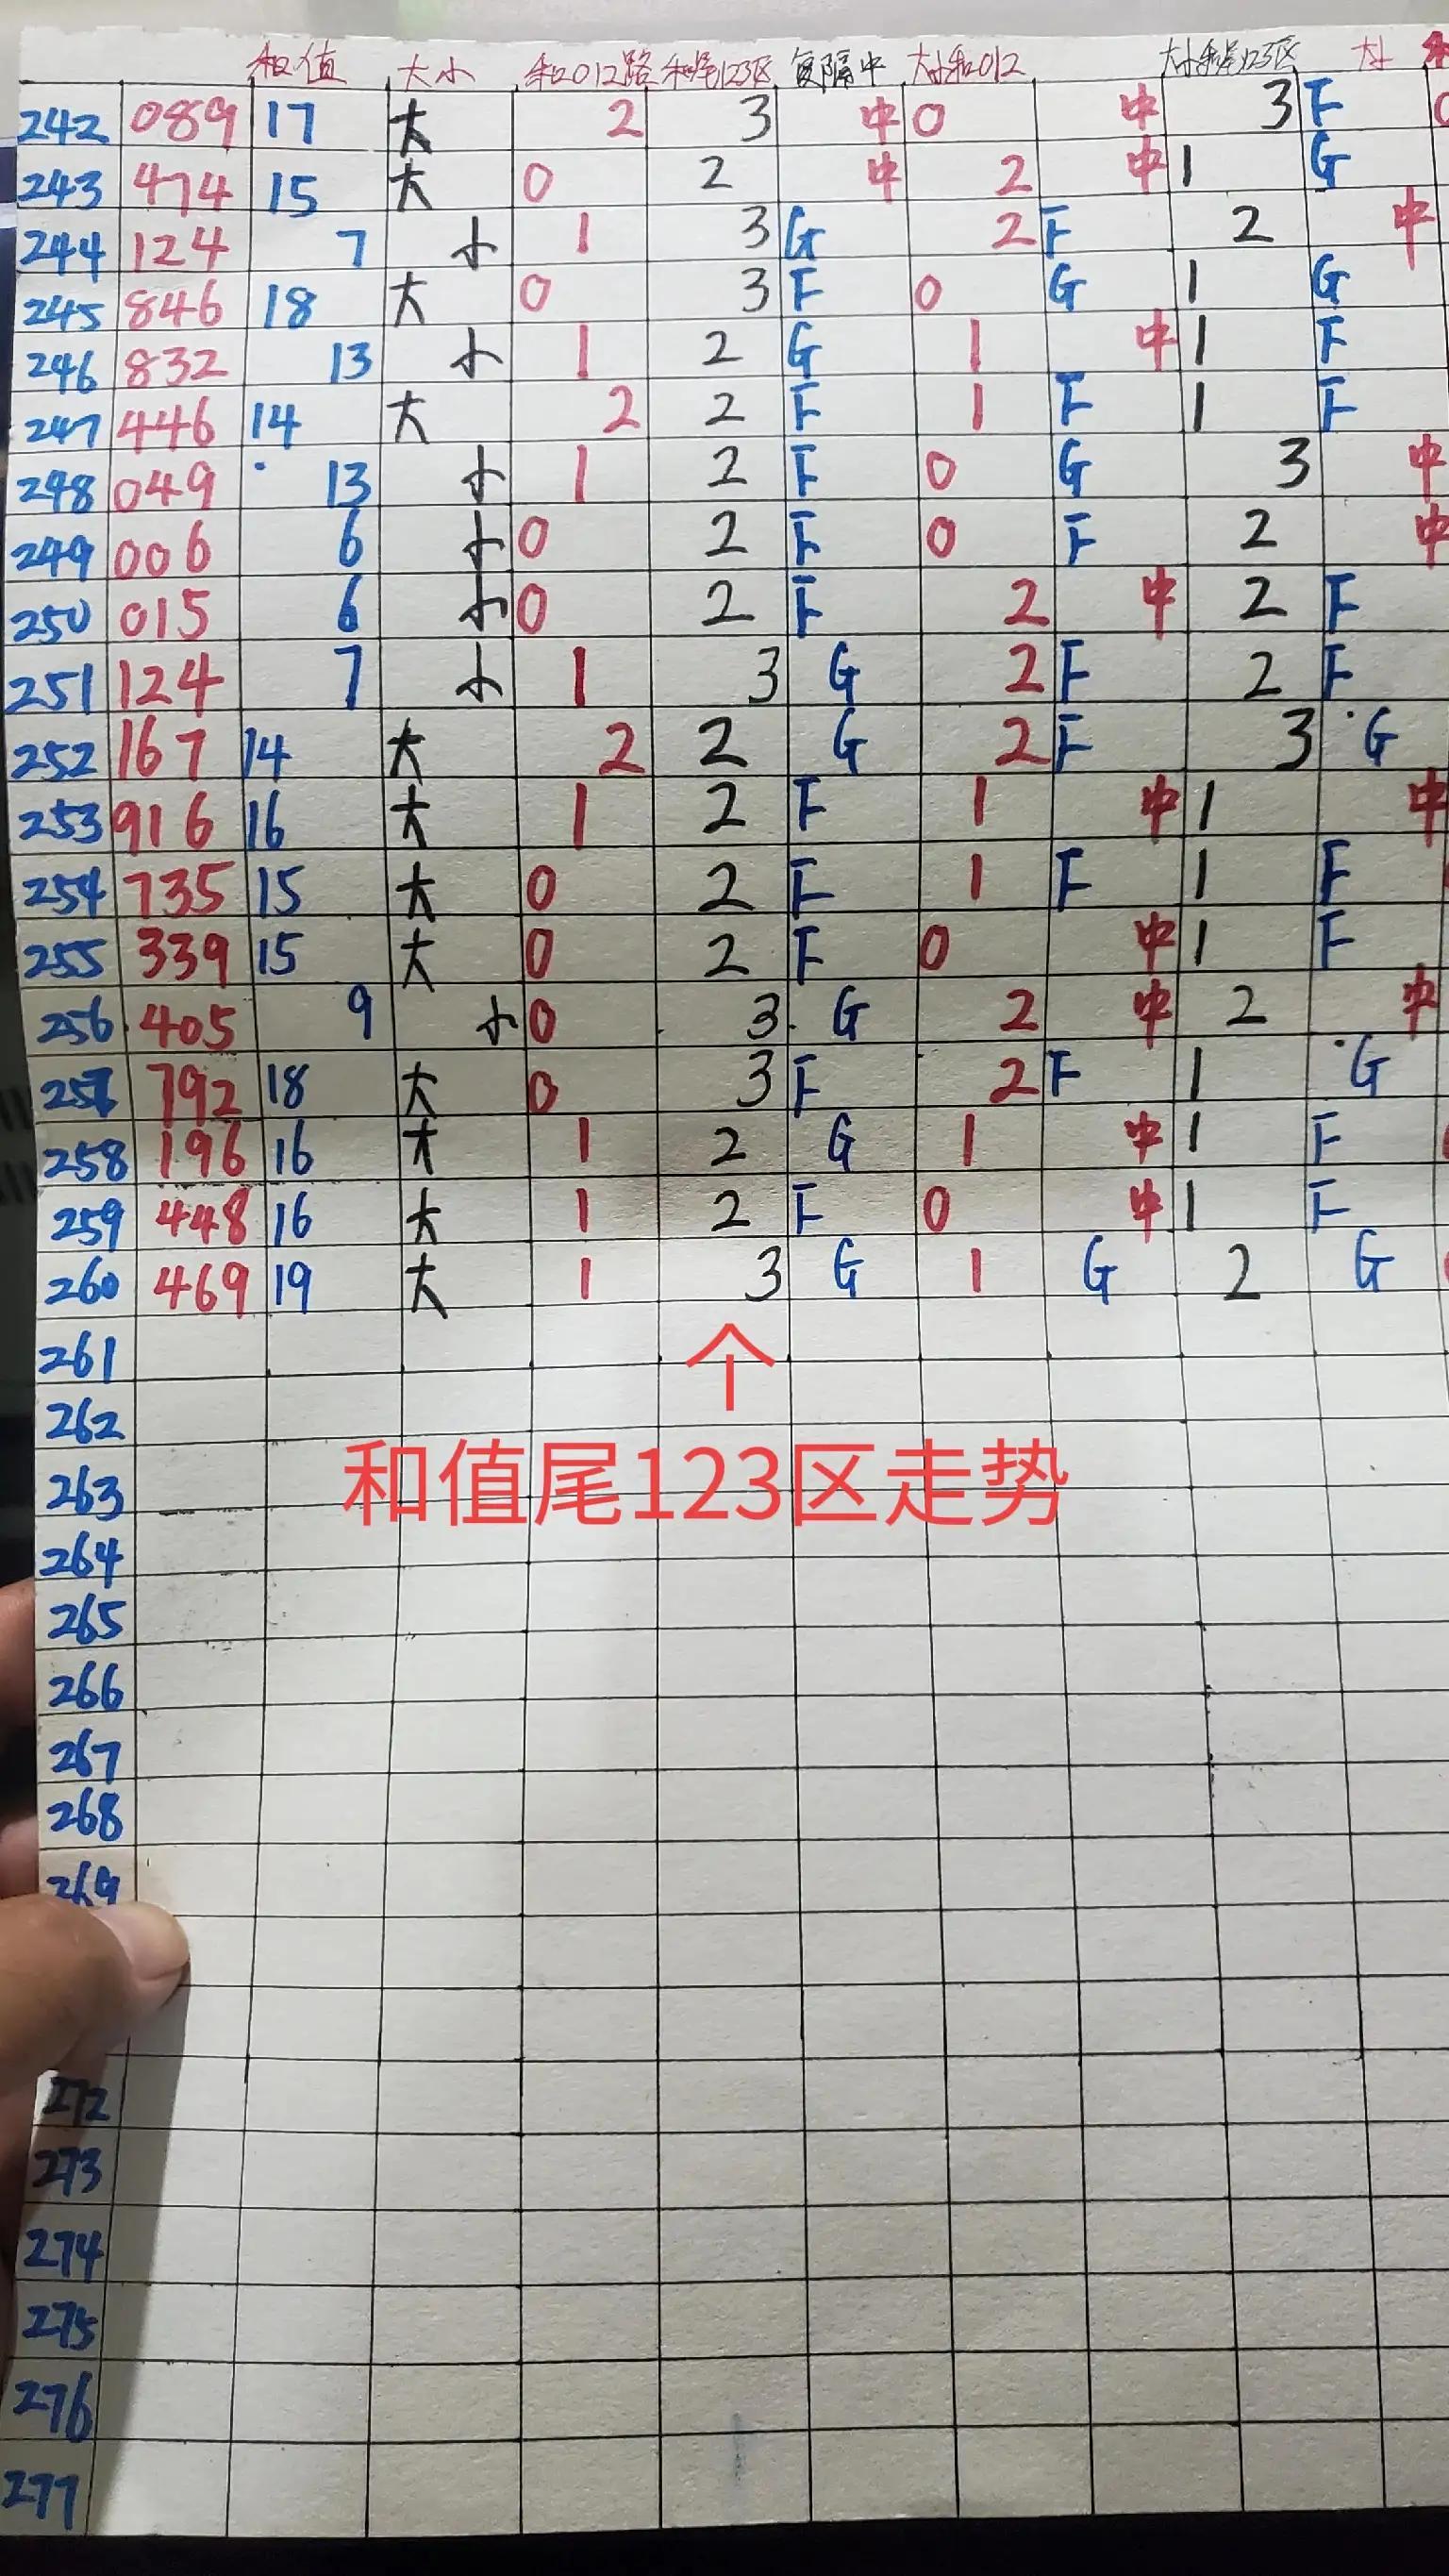 和值 大小 和012路 和尾123区 复隔中 大小和012 大小和尾123区
242 089 17 大 2 3 中 0 中 3 F
243 474 15 大 0 2 中 2 中 1 G
244 124 7 小 1 3 G 2 F 2 中
245 846 18 大 0 3 F 0 G 1 G
246 832 13 小 1 2 G 1 中 1 F
247 446 14 大 2 2 F 1 F 1 F
248 049 13 小 1 2 F 0 G 3 中
249 006 6 小 0 2 F 0 F 2 中
250 015 6 小 0 2 F 2 中 2 F
251 124 7 小 1 3 G 2 F 2 F
252 167 14 大 2 2 G 2 F 3 G
253 916 16 大 1 2 F 1 中 1 中
254 735 15 大 0 2 F 1 F 1 F
255 339 15 大 0 2 F 0 中 1 F
256 405 9 小 0 3 G 2 中 2 中
257 792 18 大 0 3 F 2 F 1 G
258 196 16 大 1 2 G 1 中 1 F
259 448 16 大 1 2 F 0 中 1 F
260 469 19 大 1 3 G 1 G 2 G
261
个
262
和值尾123区走势
263
264
265
266
267
268
269
272
273
274
275
276
277